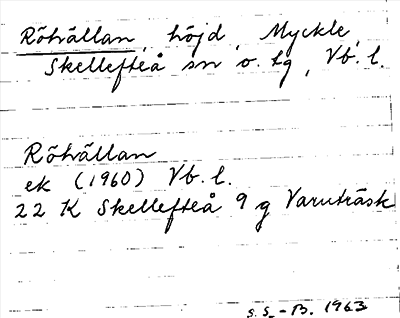 Röhällan, höjd, Myckle,
Skellefteå sn o. lg, Vb. l.
Röhällan
ek (1960) Vb. l.
22 K Skellefteå 9 g Varuträsk
S. S. - B. 1963